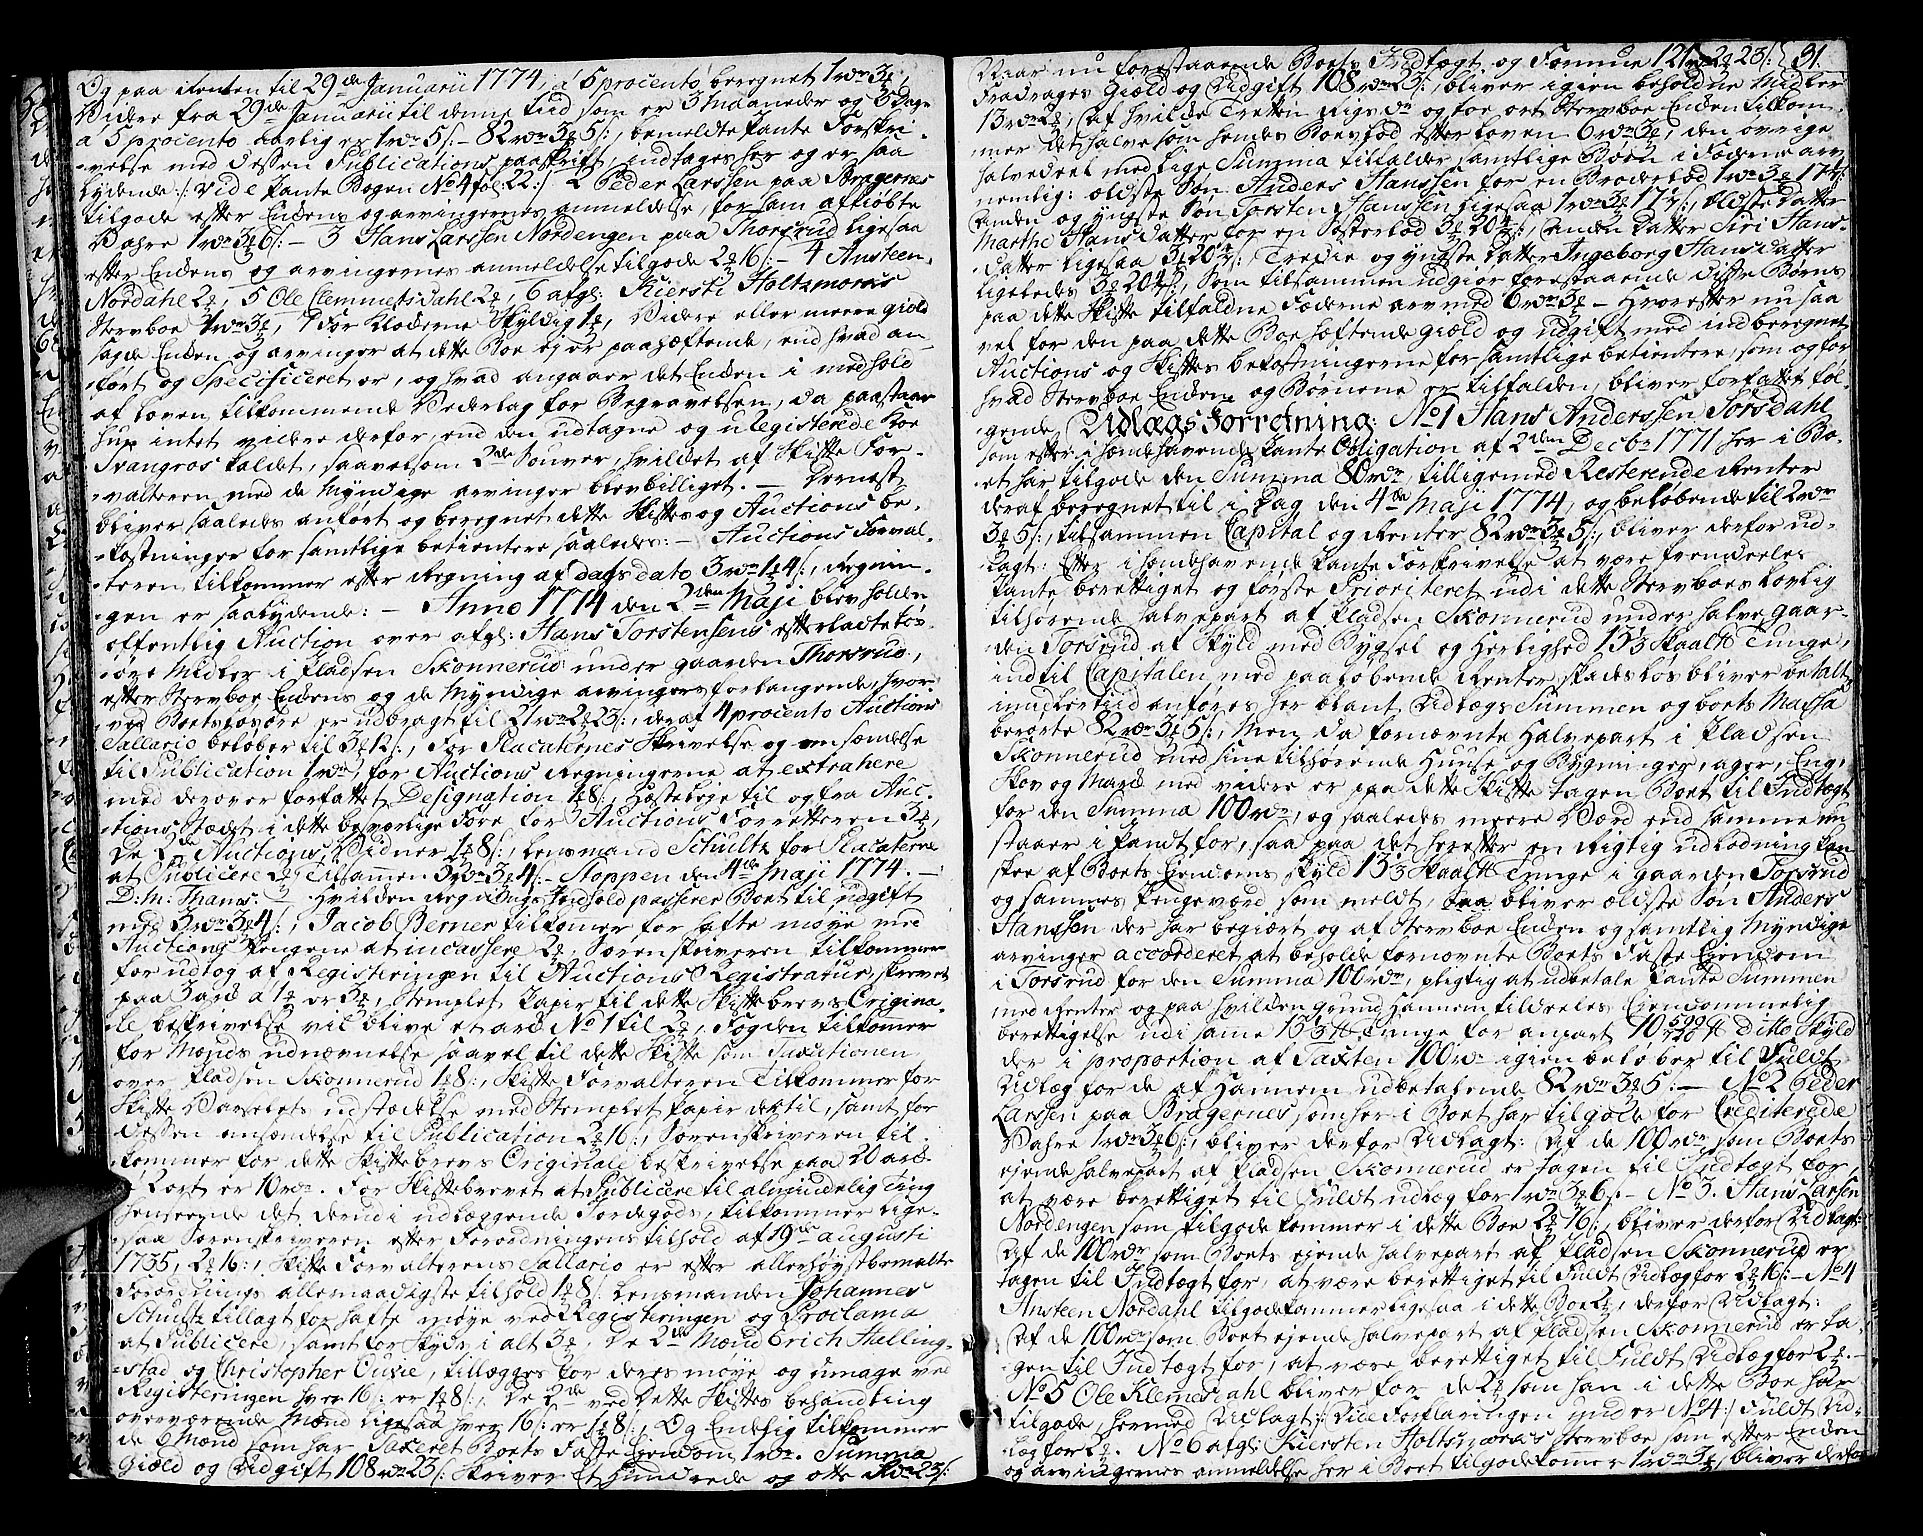 Og paa Renten til 29de Januarii 1774, á 5 procento beregnet 1 rdr 3 ₰,
Videre fra 29de Januarii til denne tiid som er 3 Maaneder og 3 Dage
a 5 procento aarlig er 1 rdr 5 s. 82 rdr 3 ₰ 5 s:, bemeldte Pante Forskri-
velse med dessen Publications paaskrift, indtages her og er saa
lydende:/: vide Pante Bogen No 4 fol: 22:/ 2 Peder Larssen paa Bragernæs
tilgode efter Enkens og arvingernes anmeldelse, for ham aftiøbte
Vahre 1 rdr 3 ₰ 6 s: - 3 Hans Larssen Nordengen paa Thorsrud ligesaa
efter Enkens og arvingernes anmeldelse tilgode 2 ₰ 16 s: - 4 Ansteen
Nordahl 2 ₰, 5 Ole Clemmetsdahl 2 ₰, 6 afgl: Kiersti Holtzmoens
Stervboe 1 rdr 3 ₰, 7 For Kloderne Skyldig 1 ₰, Videre eller meere giæld
sagde Enken og arvinger at dette Boe ej er paahæftende, end hvad an-
ført og Specificeret er, og hvad angaaer det Enken i medhold
af loven tilkommende Vederlag for Begravelsen, da paastaar
hun intet videre derfor, end den udtagne og uregisterede Koe
Svangros kaldet, saavelsom 2de Souver, hvilket af Skifte For-
valteren med de Myndige arvinger blev billiget. - Dernest
bliver saaledes anført og beregnet dette Skiftes og Auctions be-
kostninger for samtlige betientere saaledes: - Auctions Forval-
teren tilkommer efter Regning af dags dato 3 rdr 1 ₰ 4 s:, Regnin-
gen er saalydende: - Anno 1774 den 2den Maji blev holden
offentlig Auction over afgl: Hans Torstensens efterladte løs-
øre Midler i Pladsen Skonnerud under gaarden Thorsrud,
efter Stervboe Enkens og de Myndige arvingers forlangende, hvor-
ved Boets løsøre er udbragt til 21 rdr 2 ₰ 23 s:, deraf 4 procento Auctions
Sallario beløber til 3 ₰ 12 s:, For Placaternes Skrivelse og omsændelse
til Publication 1 rdr, for Auctions Regningerne at extrahere
med derover forfattet Designation 1 ₰ 8 s:, Hesteleje til og fra Auc-
tions Stædet i dette besværlige Føre for Auctions Forretteren 3 ₰,
De 2de Auctions Vidner 1 ₰ 8 s:, Lensmand Schultz for Placaterne
at Publicere 2 ₰ Tilsamen 3 rdr 3 ₰ 4 s: - Stoppen den 4de Maji 1774. -
D: M: Thams: Hvilken Regnings Indhold passerer Boet til udgift
med 3 rdr 3 ₰ 4 s:, Jacob Berner tilkomer for hafte møye med
Auctions Pengene at incassere 2 ₰, Sorenskriveren tilkommer
for udtog af Registeringen til Auctions Registratur, skrevet
paa 3 ark á 1 ₰ er 3 ₰, Stemplet Papir til dette Skiftebrevs Origina-
le beskrivelse vil blive et ark No 1 til 2 ₰, Fogden tilkomer
for Mænds udnævnelse saavel til dette Skifte som Taxationen
over Pladsen Skonnerud 1 ₰ 8 s:, Skifte Forvalteren Tilkommer for
Skifte Varselets udstædelse med Stemplet Papir dertil, samt for
dessen omsændelse til Publication 2 ₰ 16 s:, Sorenskriveren til-
kommer for dette Skiftebrevs Originale beskrivelse paa 20 ark
á 2 Ort er 10 rdr. For Skiftebrevet at Publicere til almindelig Ting
henseende det derudi udlæggende Jordegods, tilkommer lige-
saa Sorenskriveren efter Forordningens tilhold af 19de augusti
1735, 2 ₰ 16 s:, Skifte Forvalterens Sallario er efter allerhøystbemelte
Forordnings allernaadigste tilhold 1 ₰ 8 s. Lensmanden Johannes
Schultz tillagt for hafte møye ved Registeringen og Proclama
at Publicere, samt for Skyds i alt 3 ₰, De 2de Mænd Erich Helling-
stad og Christopher Qusie, tillegges for deres møye og umage ved
Registeringen hver 16 s: er 1 ₰ 8 s:, De 2de ved Dette Skiftes behandling
overværende Mænd ligesaa hver 16 s: er 1 ₰ 8 s:, Og Endelig tilkommer
de 6 Mænd som har Taxeret Boets Faste Ejendom 1 rdr. Summa
Giæld og Udgift 108 rdr 23 s: Skriver Et Hundrede og otte Rdr 23 s:
31.
Naar nu forestaaende Boets Indtægt og Formue 121 rdr 2 ₰ 23 s:
Fradrages Giæld og Udgift 108 rdr 23 s:, bliver igien beholdne Midler
13 rdr 2 ₰, af hvilde Tretten Rigsdr og toe ort Stervboe Enken tilkom-
mer det halve som hendes Boeslod efter loven 6 rdr 3 ₰, den øvrige
halvedeel med lige Summa tilfalder samtlige Børn i Føderne arv
nemlig: ældste Søn Anders Hanssen for en Broderlod 1 rdr 3 ₰ 17 1/7 s:
anden og yngste Søn Torsten Hanssen ligesaa 1 rdr 3 ₰ 17 1/7 s:, ældste Datter
Marthe Hansdatter for en Søsterlod 3 ₰ 20 4/7 s:, anden Datter Siri Hans-
datter ligesaa 3 ₰ 20 4/7 s: Tredie og yngste Datter Ingeborg Hansdatter
ligeledes 3 ₰ 20 4/7 s:, Som tilsammen udgiør forestaaende disse Børns
paa dette Skifte tilfaldne Føderne arv med 6 rdr 3 ₰ - Hvorefter nu saa
vel for den paa dette Boe hæftende giæld og udgift med indberegnet
Auctions og Skiftes bekostningerne for samtlige betientere, som og for
hvad Stervboe Enken og Børnene er tilfalden, bliver forfattet føl-
gende Udlægs Forretning: No 1 Hans Anderssen Torsdahl
som efter i hændehavende Pante Obligation af 2den Decbr 1771 her i Bo-
et har tilgode den Summa 80 rdr, tilligemed Resterende Renter
deraf beregnet til i Dag den 4de Maji 1774, og beløbende til 2 rdr
3 ₰ 5 s:, tilsammen Capital og Renter 82 rdr 3 ₰ 5 s:, bliver derfor ud-
lagt: Efter i hændehavende Pante Forskrivelse at være fremdeeles
Pante berettiget og første Prioriteret udi dette Stervboes lovlig
tilhørende halvepart af Pladsen Skonnerud under halve gaar-
den Torsrud af Skyld med Bygsel og Herlighed 13 1/3 Skaalt Tunge,
indtil Capitalen med paaløbende Renter skadesløs bliver betalt,
imidlertiid anføres her blant Udlægs Summen og boets Massa
berørte 82 rdr 3 ₰ 5 s:, Men da fornævnte Halvepart i Pladsen
Skonnerud med sine tilhørende Huuse og Bygninger, ager, Eng,
Skov og Mark med videre er paa dette Skifte tagen Boet til Indtægt
for den Summa 100 rdr, og saaledes meere Værd end samme nu
staaer i Pandt for, saa paa det herefter en Rigtig udlodning kan
skee af Boets Ejendoms skyld 13 1/3 Skaalt Tunge i gaarden Torsrud
og sammes Pengeværd som meldt, saa bliver ældste Søn Anders
Hanssen der har begiært og af Stervboe Enken og samtlig Myndige
arvinger accorderet at beholde fornævnte Boets Faste Ejendom
i Torsrud for den Summa 100 rdr, pligtig at udbetale Pante Summen
med Renter og paa hvilken grund Hannem tildeeles Eiendommelig
berettigelse udi same 13 1/3 Tunge for anpart 10 599/720 Ditto Skyld
der i proportion af Taxten 100 rdr igien beløber til Fuldt
Udlæg for de af Hannem udbetalende 82 rdr 3 ₰ 5 s: - No 2 Peder
Larssen paa Bragernes, som her i Boet har tilgode for Crediterede
Vahre 1 rdr 3 ₰ 6 s:, bliver derfor Udlagt: Af de 100 rdr som Boets
ejende halvepart af Pladsen Skonnerud er tagen til Indtægt for,
at være berettiget til Fuldt udlæg for 1 rdr 3 ₰ 6 s: - No 3. Hans Larsen
Nordengen som tilgodekommer i dette Boe 2 ₰ 16 s:, bliver derfor Udlagt:
Af de 100 rdr som Boets ejende halvepart af Pladsen Skonnerud er
tagen til Indtægt for, at være berettiget til Fuldt Udlæg for 2 ₰ 16 s: - No 4
Ansteen Nordahl tilgodekommer ligesaa i dette Boe 2 ₰, derfor Udlagt:
Af de 100 rdr som Boet ejende halvepart af Pladsen Skonnerud er ta-
gen til Indtægt for, at være berettiget til Fuldt Udlæg for 2 ₰. -
No 5 Ole Klemetsdahl bliver for de 2 ₰ som han i dette Boe haver
tilgode, hermed Udlagt:/: Vide Forklaringen under No 4:/ Fuldt Ud-
læg for 2 ₰. No 6 afgl: Kiersten Holtsmoens Stervboe som efter Enken
og arvingernes anmeldelse her i Boet tilgodekomer 1 rdr 3 ₰, bliver derfor